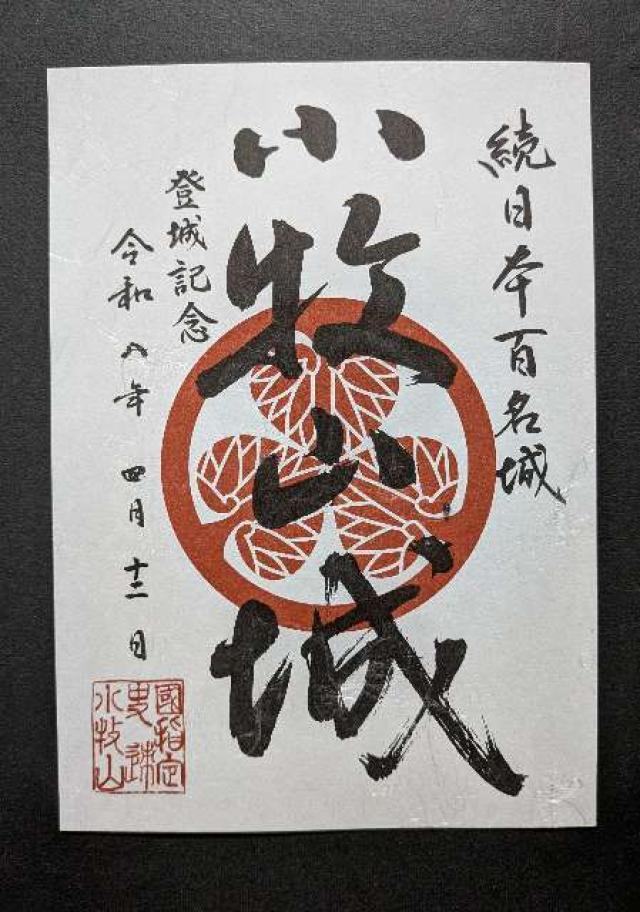 続日本百名城
小牧山城
登城記念
令和八年 四月十二日
國指定
史跡
小牧山